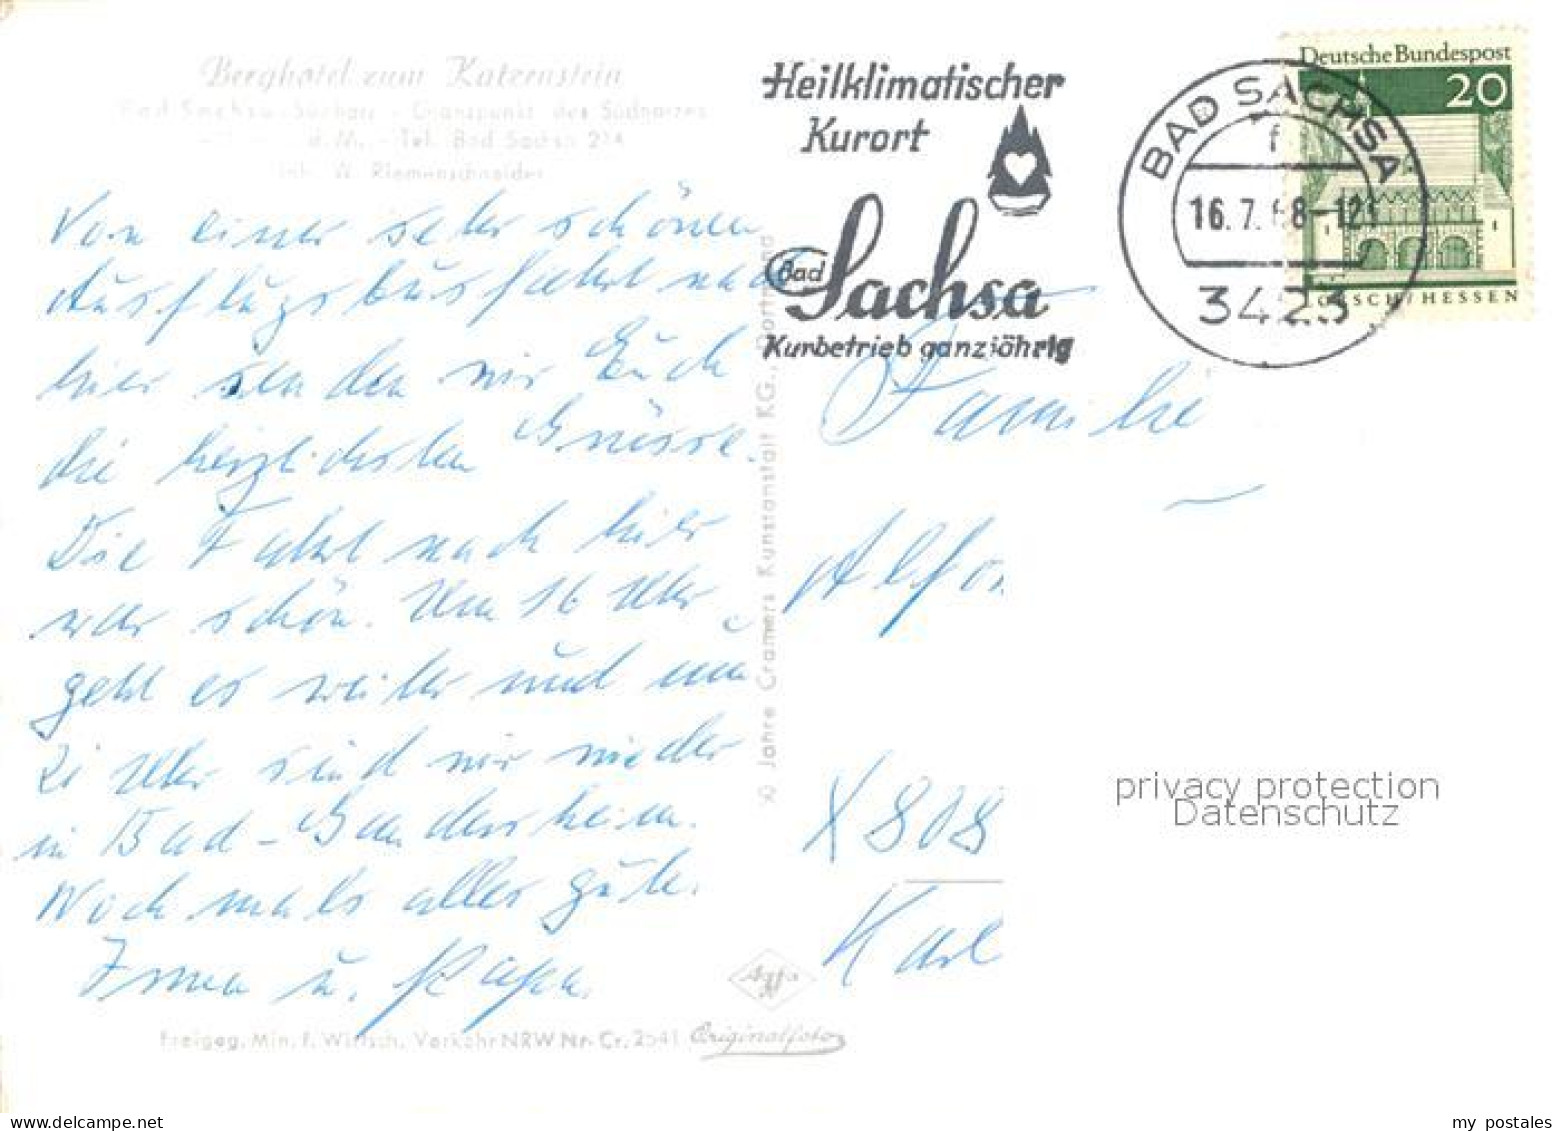 Berghotel zum Katzenstein
Bad Sachsa-Südharz - Glanzpunkt des Südharzes
Tel. Bad Sachsa 274
Inh. W. Riemenschneider
Von einer sehr schönen
Ausflugsbusfahrt nach
hier senden wir Euch
die herzlichsten Grüsse.
Die Fahrt nach hier
war schön. Um 16 Uhr
geht es weiter und um
21 Uhr sind wir wieder
in Bad-Gandersheim.
Nochmals alles gute.
Irma u. Papa.
Freigeg. Min. f. Wirtsch. Verkehr NRW Nr. Cr. 2541
Agfa
Originalfoto
Jahre Cramers Kunstanstalt KG., Dortmund
Heilklimatischer
Kurort
Bad Sachsa
Kurbetrieb ganzjährig
BAD SACHSA
f
16.7.68-12
3423
Deutsche Bundespost
20
LORSCH/HESSEN
Familie
Alfon
X 808
Karl
privacy protection
Datenschutz
my postales